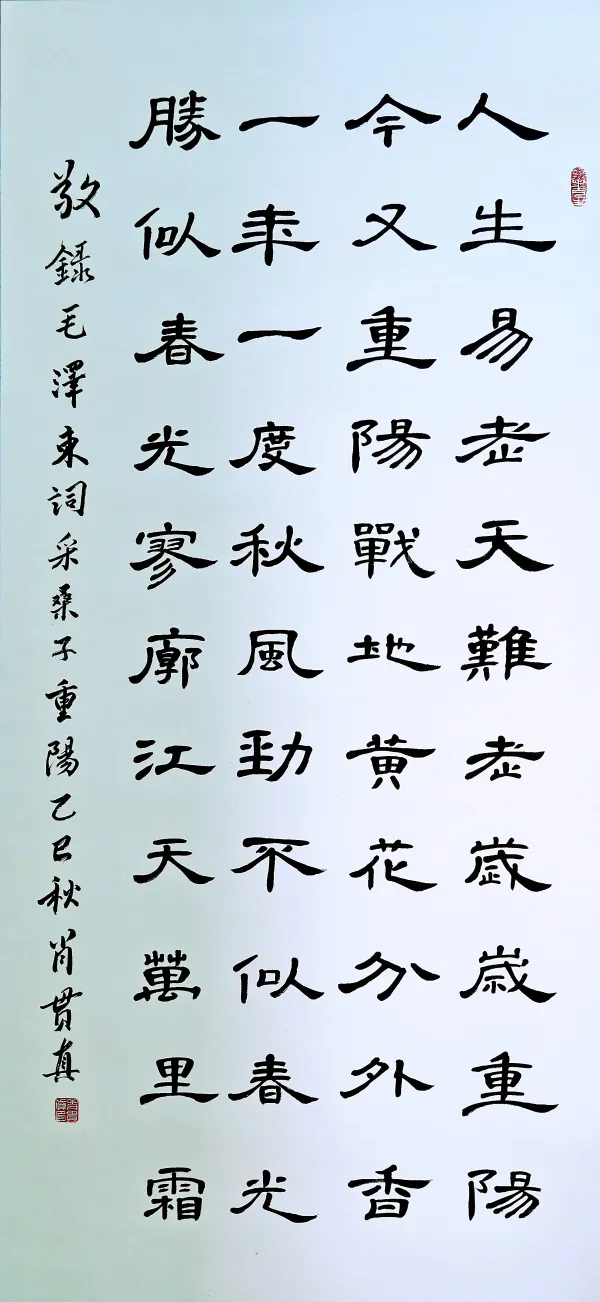 人生易老天難老歲歲重陽
今又重陽戰地黃花分外香
一年一度秋風勁不似春光
勝似春光寥廓江天萬里霜
敬錄毛澤東詞采桑子重陽乙巳秋肖貫真